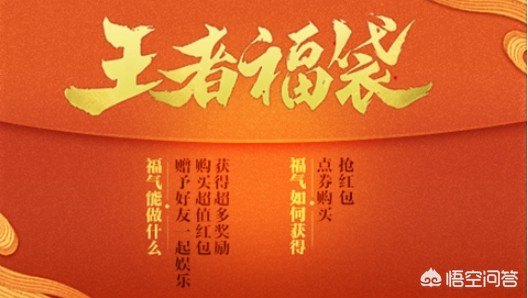 王者福袋
福气如何获得
抢红包
点券购买
福气能做什么
获得超多奖励
购买超值红包
赠予好友一起娱乐
悟空问答